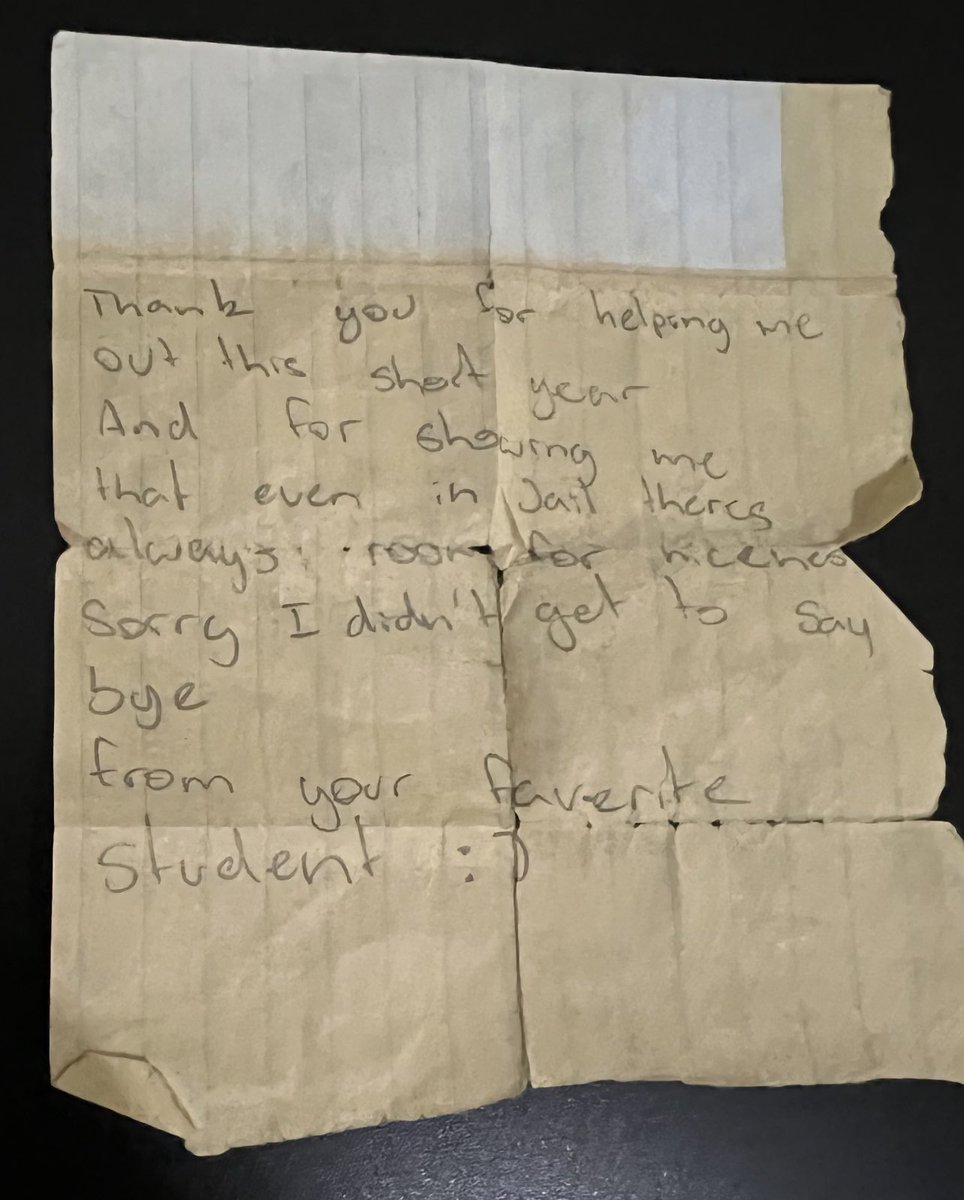 Thank you for helping me
out this short year
And for showing me
that even in Jail theres
always room for niceness
Sorry I didn't get to say
bye
from your faverite
student :)